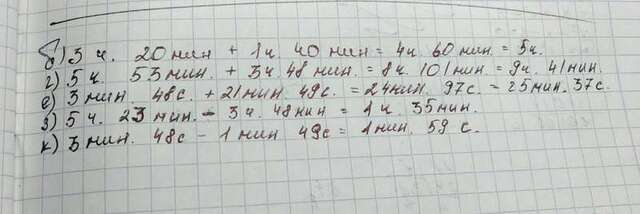 б) 3 ч. 20 мин + 1 ч. 40 мин = 4 ч. 60 мин. = 5 ч.
г) 5 ч. 53 мин. + 3 ч. 48 мин. = 8 ч. 101 мин. = 9 ч. 41 мин.
е) 3 мин 48 с. + 21 мин. 49 с. = 24 мин. 97 с. = 25 мин. 37 с.
з) 5 ч. 23 мин. - 3 ч. 48 мин = 1 ч. 35 мин.
к) 3 мин. 48 с - 1 мин 49 с = 1 мин. 59 с.